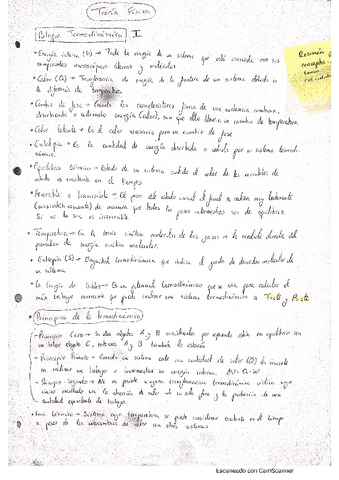 Teoría Física
Bloque Termodinámica I
Resumen
conceptos
• Energía interna (U) → Toda la energía de un sistema que está asociada con sus
componentes microscópicos átomos y moléculas
• Calor (Q) → Transferencia de energía de la frontera de un sistema debido a
la diferencia de temperatura
• Cambio de fase → Cuando las características físicas de una sustancia cambian,
absorbiendo o cediendo energía (calor), sin que ello lleve a cambio de temperatura
• Calor latente → Es el calor necesario para un cambio de fase
• Entalpía → Es la cantidad de energía absorbida o cedida por un sistema termodi-
námico.
• Equilibrio térmico → Estado de un sistema cuando el valor de las variables de
estado es constante en el tiempo
• Reversible o Irreversible → El paso del estado inicial al final se realiza muy lentamente
de manera que todos los pasos intermedios son de equilibrio.
Si no lo es es irreversible
• Temperatura → En la cinética molecular de los gases es la medida directa del
promedio de energía cinética molecular.
• Entropía (S) → Magnitud termodinámica que indica el grado de desorden molecular de
un sistema
• La energía de Gibbs → Es un potencial termodinámico que se usa para calcular el
trabajo reversible que puede realizar un sistema termodinámico a Tcte y Pcte
Principios de la termodinámica
- Principio Cero → Si dos objetos A y B por separado están en equilibrio con
un tercer objeto C, entonces A y B también lo estarán
- Principio Primero → Cuando un sistema una cantidad de calor (Q) la invierte
en realizar un trabajo e incrementar su energía interna. ΔU = Q-W
- Principio Segundo → No es posible ninguna transformación termodinámica cíclica cuyo
único resultado sea la absorción de calor de un solo foco y la producción de una
cantidad equivalente de trabajo.
• térmico → Sistema cuya temperatura se puede considerar constante en el tiempo
a pesar de los intercambios de calor con otros sistemas
Escaneado con CamScanner